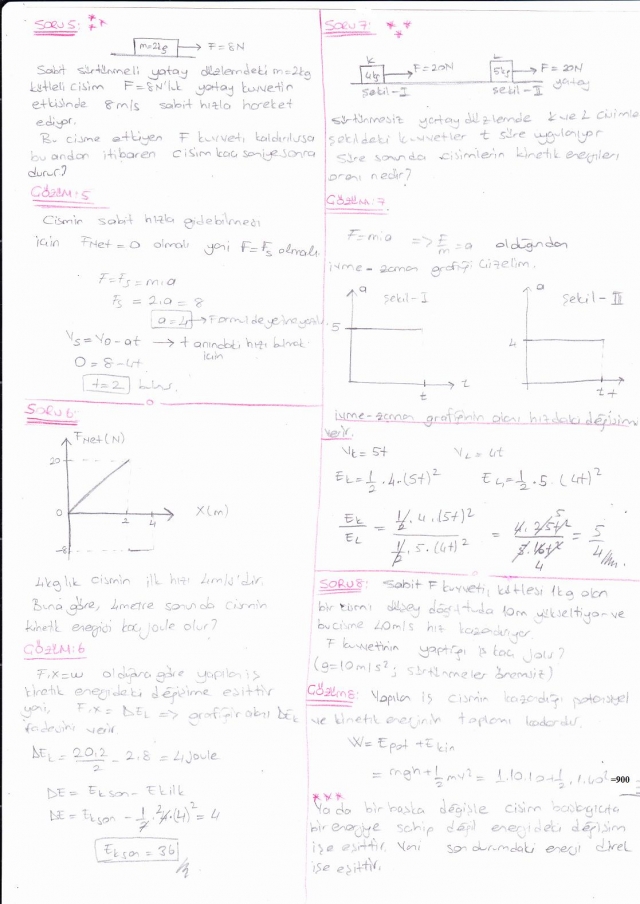 SORU 5:
m=2kg F=8N
Sabit sürtünmeli yatay düzlemdeki m=2kg
kütleli cisim F=8N'luk yatay kuvvetin
etkisinde 8m/s sabit hızla hareket
ediyor.
Bu cisme etkiyen F kuvveti kaldırılırsa
bu andan itibaren cisim kaç saniye sonra
durur?
ÇÖZÜM:5
Cismin sabit hızla gidebilmesi
için FNet=0 olmalı yani F=Fs olmalı.
F=Fs=m.a
Fs=2.a=8
a=4 → Formülde yerine yazılır
Vs=V0-at → t anındaki hızı bulmak
için
0=8-4t
t=2 bulunur.
SORU 6
FNet(N)
20
0 2 4 X(m)
-8
4kg lık cismin ilk hızı 4m/s'dir.
Buna göre, 4metre sonunda cismin
kinetik enerjisi kaç joule olur?
ÇÖZÜM:6
F.X=W olduğuna göre yapılan iş
kinetik enerjideki değişime eşittir
yani, F.X=ΔEk => grafiğin alanı ΔEk
ifadesini verir
ΔEk=20.2/2 - 2.8 = 4 joule
ΔE=Ekson-Ekilk
ΔE=Ekson-1/2.4.(4)²=4
Ekson=36
SORU 7:
K 4kg F=20N L 5kg F=20N
yatay
Şekil-I Şekil-II
Sürtünmesiz yatay düzlemde K ve L cisimlerine
şekildeki kuvvetler t süre uygulanıyor
Süre sonunda cisimlerin kinetik enerjileri
oranı nedir?
ÇÖZÜM:7
F=m.a => F/m=a olduğundan
ivme-zaman grafiği çizelim.
a Şekil-I a Şekil-II
5 4
t t t t
ivme-zaman grafiğinin alanı hızdaki değişimi
verir.
Vk=5t VL=4t
Ek=1/2.4.(5t)² EL=1/2.5.(4t)²
Ek/EL = 1/2.4.(5t)² / 1/2.5.(4t)² = 4.25t² / 5.16t² = 5/4
SORU 8: Sabit F kuvveti, kütlesi 1kg olan
bir cismi düşey doğrultuda 10m yükseltiyor ve
bu cisme 40m/s hız kazandırıyor.
F kuvvetinin yaptığı iş kaç joule?
(g=10m/s²; sürtünmeler önemsiz)
ÇÖZÜM8: Yapılan iş cismin kazandığı potansiyel
ve kinetik enerjinin toplamı kadardır.
W=Epot+Ekin
=mgh+1/2mv²=1.10.10+1/2.1.40²=900
Ya da bir başka değişle cisim başlangıçta
bir enerjiye sahip değil enerjideki değişim
işe eşittir. Yani son durumdaki enerji direk
işe eşittir.